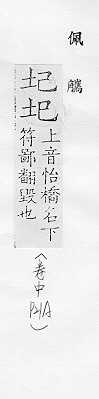 佩觿
圯圮
上音怡橋名下
符鄙翻毀也
（卷中